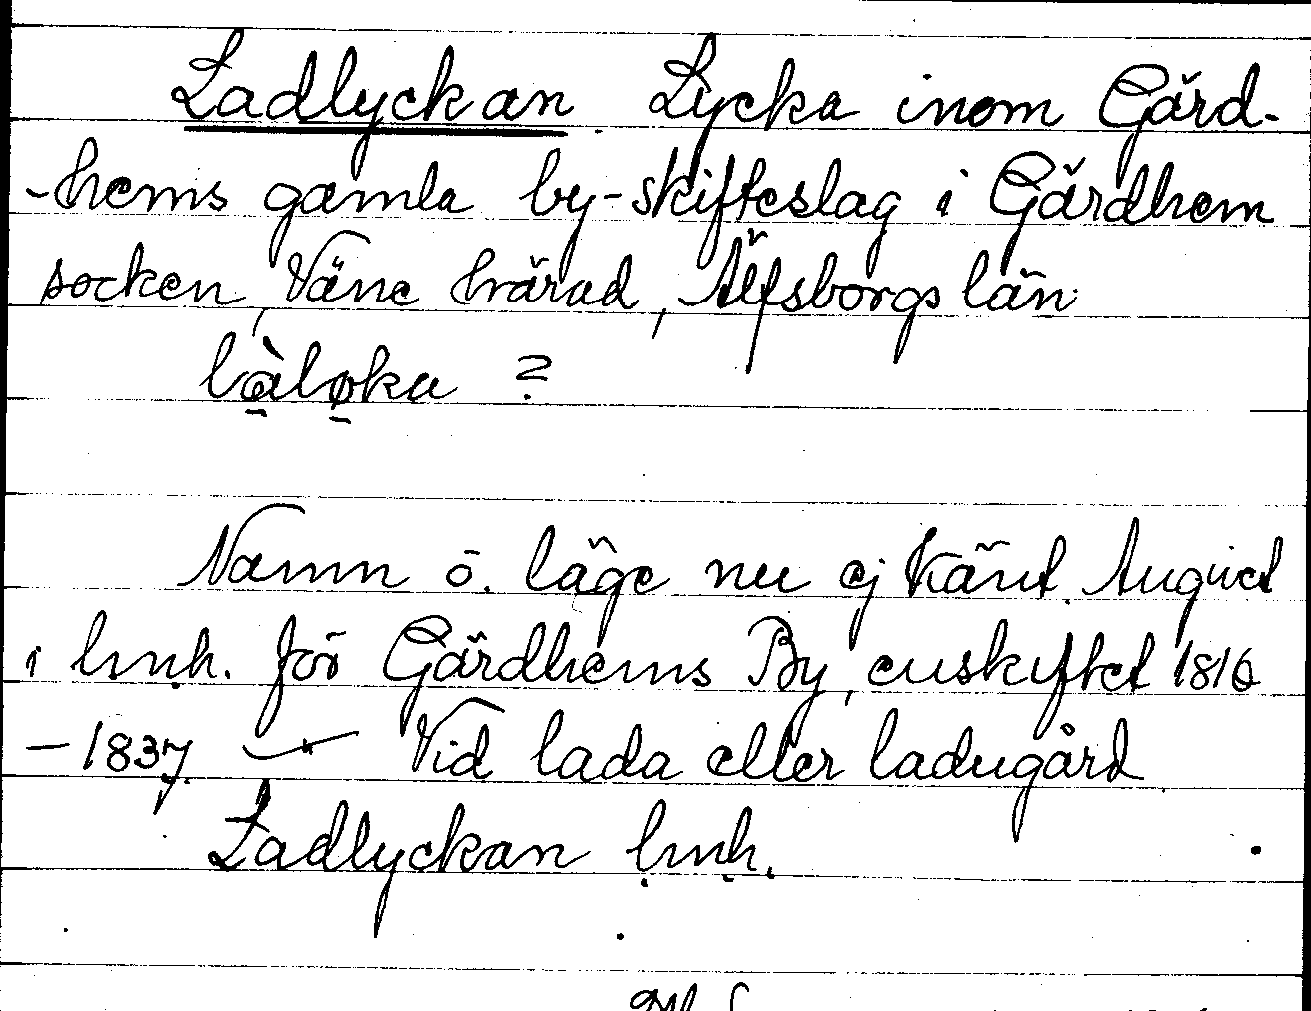 Ladlyckan. Lycka inom Gärd-
-hems gamla by-skifteslag i Gärdhem
socken, Väne härad, Älfsborgs län.
làløka ?
Namn o. läge nu ej känt. Angivet
i lmh. för Gärdhems By, enskiftet 1816
-1837. — Vid lada eller ladugård
Ladlyckan lmh.